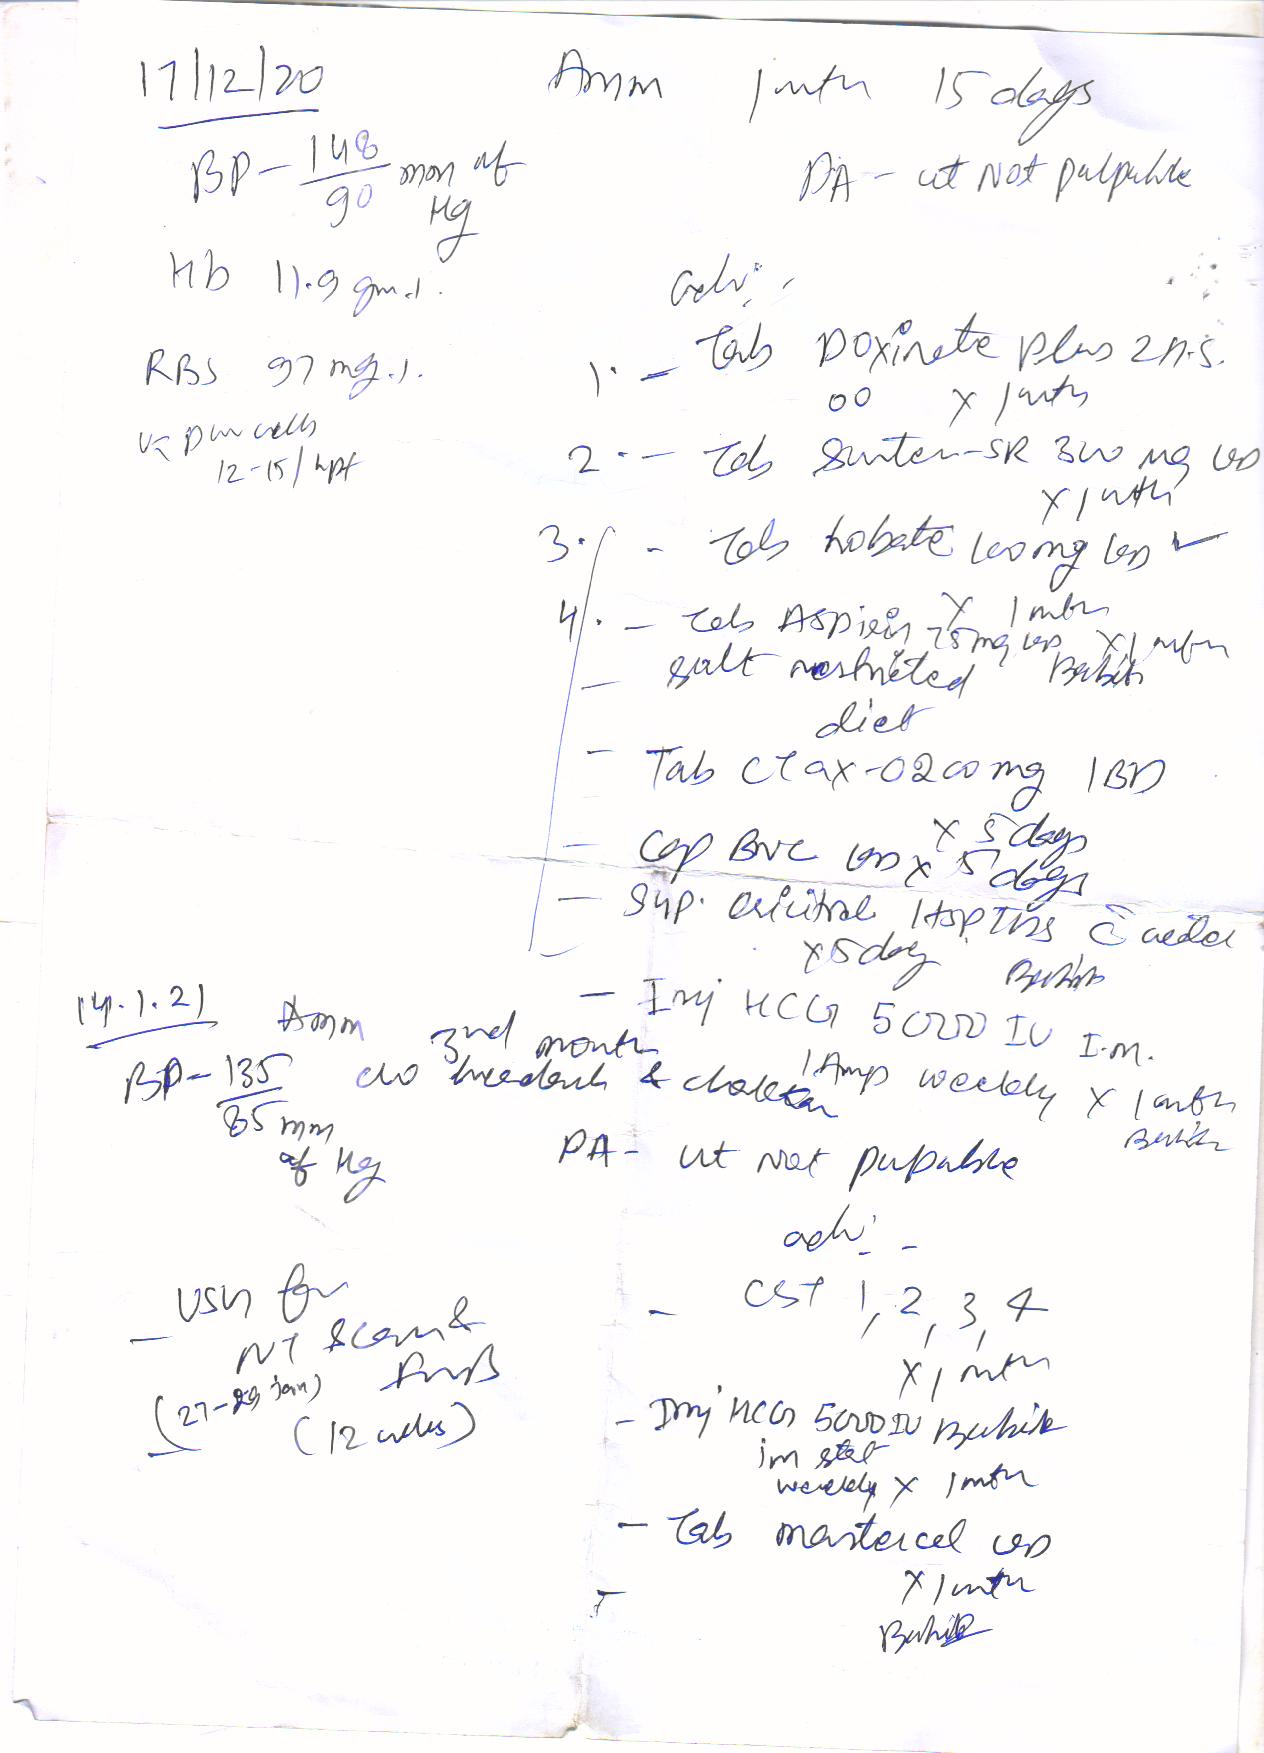 17/12/20
Amm 1 mth 15 days
BP - 148/90 mm of Hg
PA - ut Not palpable
Hb 11.9 gm.1.
RBS 97 mg.1.
pus cells
12-15/hpf
adv: -
1. - Tab Doxinate plus 2 H.S.
00 x 1 mth
2. - Tab Susten-SR 300 mg OD
x 1 mth
3. - Tab Lobate 100 mg OD ✓
x 1 mth
4. - Tab Aspirin 75 mg OD x 1 mth
- Salt restricted
diet
- Tab CTax-O 200 mg 1 BD
x 5 days
- Cap BVC OD x 5 days
- Syp. 1 tsp TDS c̄ water
x 5 day
- Inj HCG 5000 IU I.M.
1 Amp weekly x 1 mth
14.1.21
Amm 3rd month
BP - 135/85 mm of Hg
c/o &
PA - ut Not palpable
adv: -
- USG for
NT Scan &
(27-29 Jan)
(12 weeks)
- CST 1, 2, 3, 4
x 1 mth
- Inj HCG 5000 IU
im stat
weekly x 1 mth
- Tab mastercal OD
x 1 mth